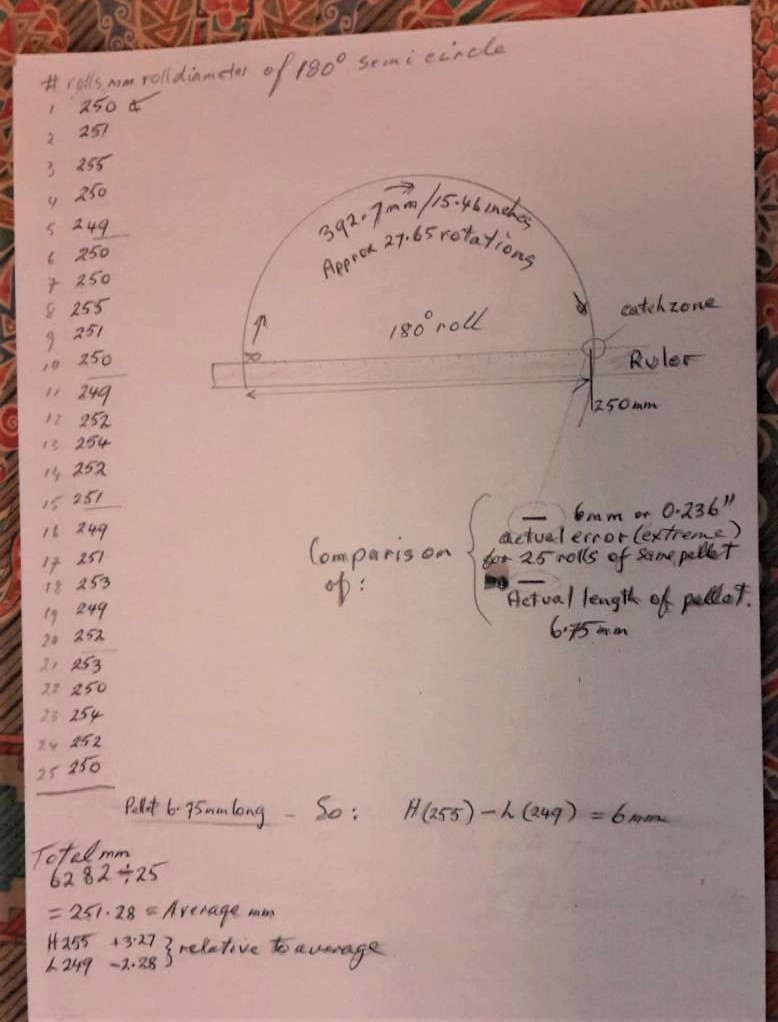 # rolls mm roll diameter of 180° semi circle
1 250
2 251
3 255
4 250
5 249
6 250
7 250
8 255
9 251
10 250
11 249
12 252
13 254
14 252
15 251
16 249
17 251
18 253
19 249
20 252
21 253
22 250
23 254
24 252
25 250
392.7mm/15.46 inches
Approx 27.65 rotations
180° roll
catch zone
Ruler
250mm
Comparison
of:
6mm or 0.236"
actual error (extreme)
for 25 rolls of same pellet
Actual length of pellet.
6.75 mm
Pellet 6.75mm long - So: H(255) - L(249) = 6mm
Total mm
6282 ÷ 25
= 251.28 = Average mm
H 255 +3.27 } relative to average
L 249 -2.28